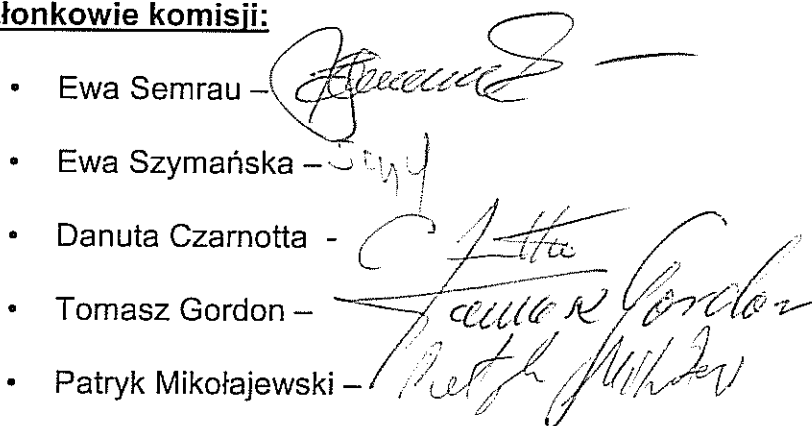 łonkowie komisji:
• Ewa Semrau –
• Ewa Szymańska –
• Danuta Czarnotta -
• Tomasz Gordon – Tomasz Gordon
• Patryk Mikołajewski – Patryk